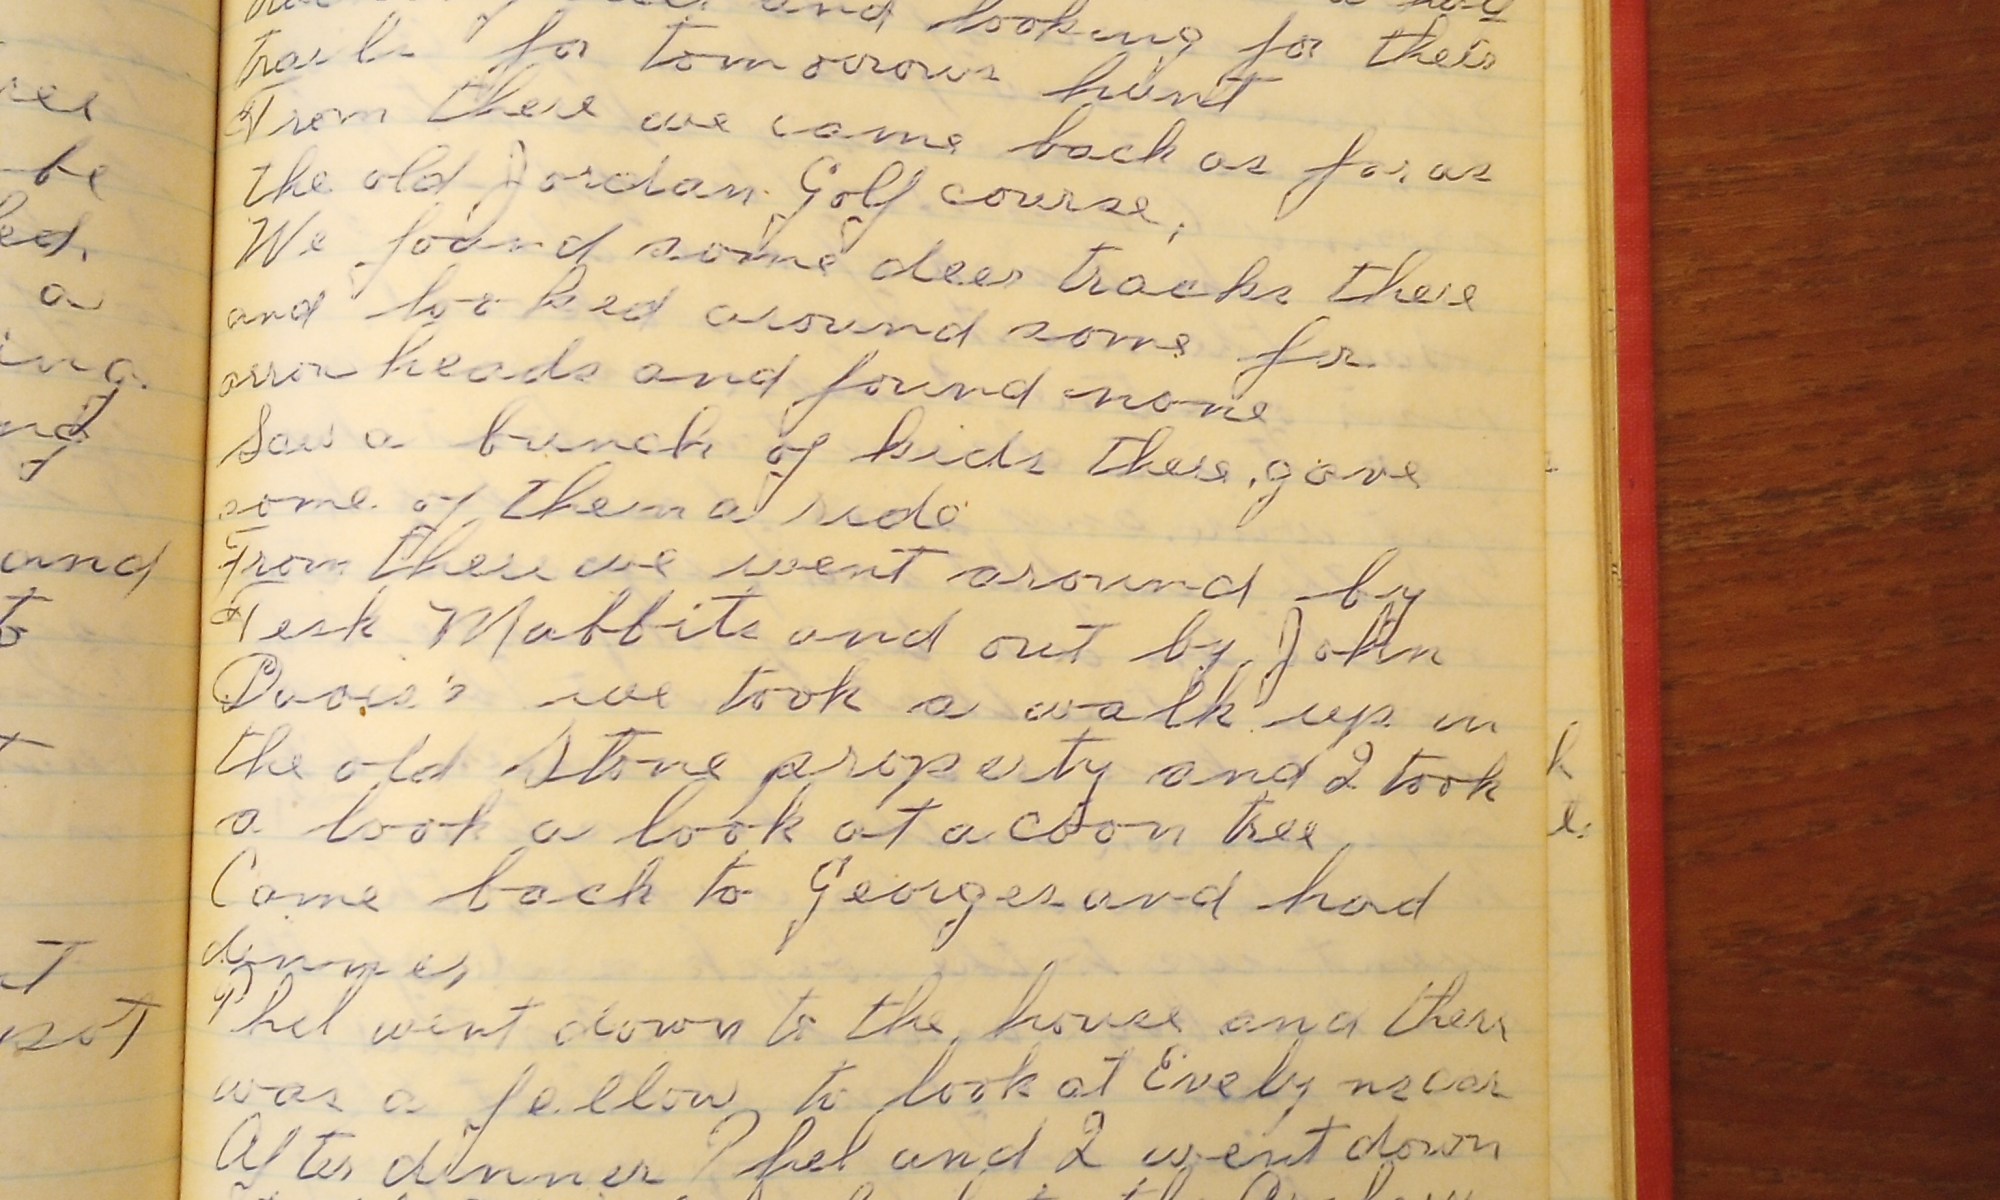 and looking for their
trails for tomorrows hunt
From there we came back as far as
the old Jordan Golf course,
We found some deer tracks there
and looked around some for
arrow heads and found none
Saw a bunch of kids there, gave
some of them a ride
From there we went around by
Tesk Mabbits and out by John
Davis's we took a walk up in
the old Stone property and I took
a look a look at a coon tree
Came back to Georges and had
dinner
Phel went down to the house and there
was a fellow to look at Evelyns car
After dinner Phel and I went down
ree
be
a
and
to